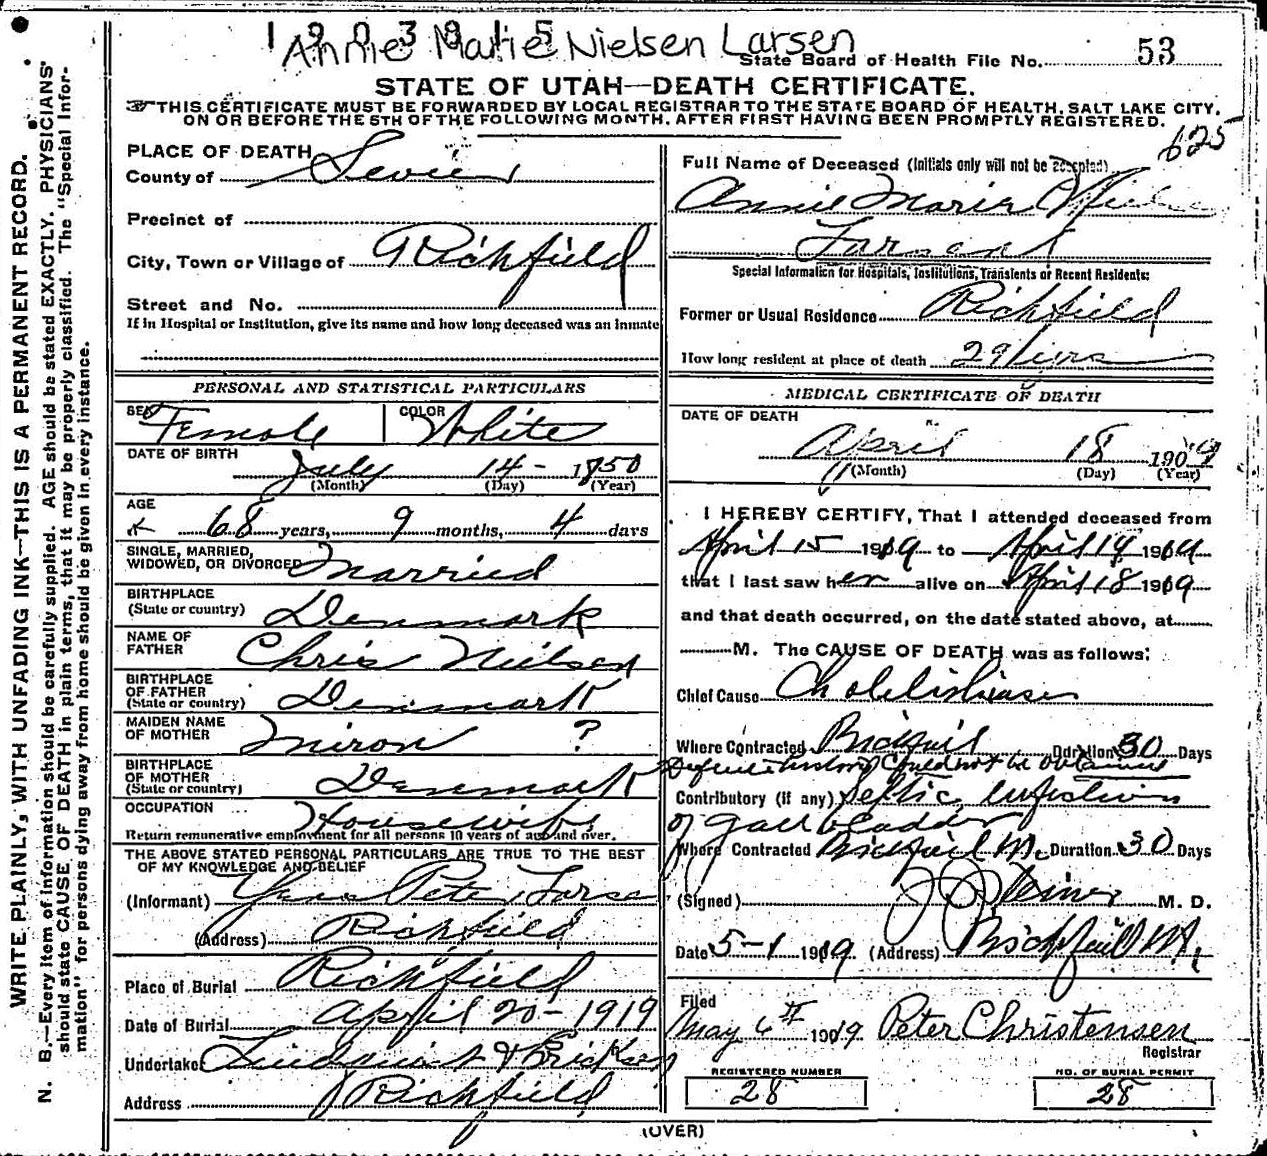 1903915
Annie Marie Nielsen Larsen
State Board of Health File No. 53
STATE OF UTAH—DEATH CERTIFICATE.
THIS CERTIFICATE MUST BE FORWARDED BY LOCAL REGISTRAR TO THE STATE BOARD OF HEALTH, SALT LAKE CITY,
ON OR BEFORE THE 5TH OF THE FOLLOWING MONTH, AFTER FIRST HAVING BEEN PROMPTLY REGISTERED.
625
WRITE PLAINLY, WITH UNFADING INK—THIS IS A PERMANENT RECORD.
N. B.—Every item of information should be carefully supplied. AGE should be stated EXACTLY. PHYSICIANS
should state CAUSE OF DEATH in plain terms, that it may be properly classified. The "Special Infor-
mation" for persons dying away from home should be given in every instance.
PLACE OF DEATH
County of Sevier
Precinct of
City, Town or Village of Richfield
Street and No.
If in Hospital or Institution, give its name and how long deceased was an inmate
PERSONAL AND STATISTICAL PARTICULARS
SEX Female COLOR White
DATE OF BIRTH
July 14- 1850
(Month) (Day) (Year)
AGE
68 years, 9 months, 4 days
SINGLE, MARRIED,
WIDOWED, OR DIVORCED Married
BIRTHPLACE
(State or country) Denmark
NAME OF
FATHER Chris Nielsen
BIRTHPLACE
OF FATHER
(State or country) Denmark
MAIDEN NAME
OF MOTHER Miron ?
BIRTHPLACE
OF MOTHER
(State or country) Denmark
OCCUPATION Housewife
Return remunerative employment for all persons 10 years of age and over.
THE ABOVE STATED PERSONAL PARTICULARS ARE TRUE TO THE BEST
OF MY KNOWLEDGE AND BELIEF
(Informant) Peter Larsen
(Address) Richfield
Place of Burial Richfield
Date of Burial April 20-1919
Undertaker Lindquist & Ericksen
Address Richfield
Full Name of Deceased (Initials only will not be accepted)
Annie Marie Nielsen
Larsen
Special Information for Hospitals, Institutions, Transients or Recent Residents:
Former or Usual Residence Richfield
How long resident at place of death 29
MEDICAL CERTIFICATE OF DEATH
DATE OF DEATH
April 18 1909
(Month) (Day) (Year)
I HEREBY CERTIFY, That I attended deceased from
April 15 1919 to April 18 1919
that I last saw her alive on April 18 1919
and that death occurred, on the date stated above, at
M. The CAUSE OF DEATH was as follows:
Chief Cause
Where Contracted Richfield Duration 30 Days
Definite history could not be obtained
Contributory (if any) Septic infection
of gall bladder
Where Contracted Richfield Duration 30 Days
(Signed) M. D.
Date 5-1 1919 (Address) Richfield Ut.
Filed
May 6th 1919 Peter Christensen
Registrar
REGISTERED NUMBER
28
NO. OF BURIAL PERMIT
28
(OVER)